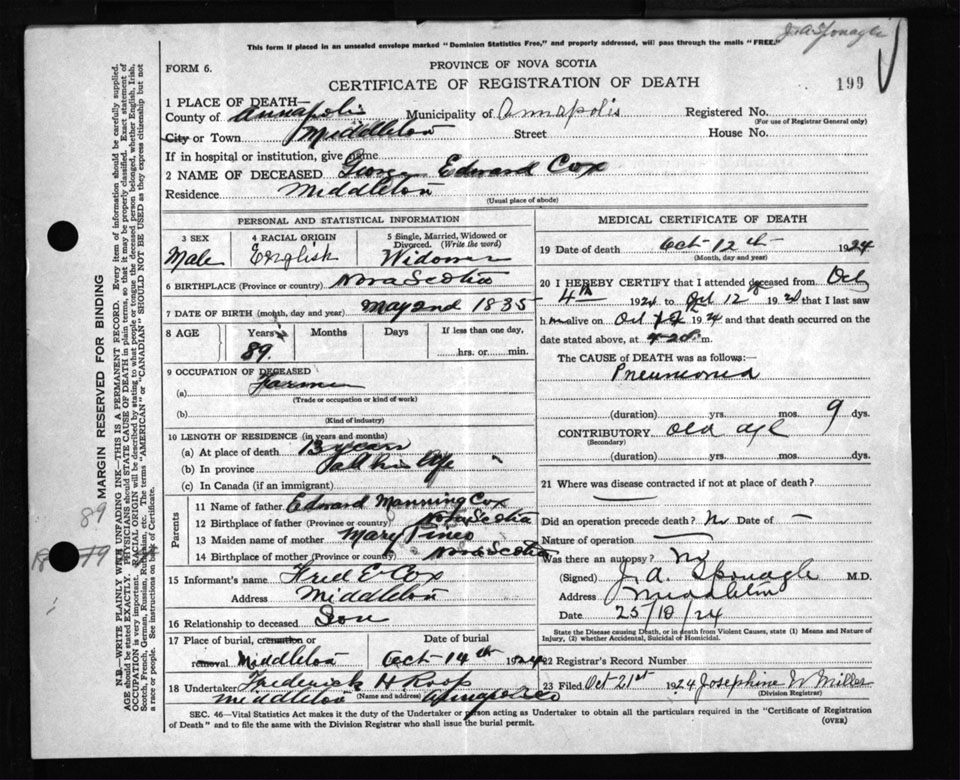 J. A. Sponagle
This form if placed in an unsealed envelope marked "Dominion Statistics Free," and properly addressed, will pass through the mails "FREE."
PROVINCE OF NOVA SCOTIA
FORM 6.
CERTIFICATE OF REGISTRATION OF DEATH
199
1 PLACE OF DEATH—
County of Annapolis Municipality of Annapolis Registered No.
(For use of Registrar General only)
City or Town Middleton Street House No.
If in hospital or institution, give name
2 NAME OF DECEASED George Edward Cox
Residence Middleton
(Usual place of abode)
PERSONAL AND STATISTICAL INFORMATION
3 SEX 4 RACIAL ORIGIN 5 Single, Married, Widowed or Divorced. (Write the word)
Male English Widower
6 BIRTHPLACE (Province or country) Nova Scotia
7 DATE OF BIRTH (month, day and year) May 2nd 1835
8 AGE Years Months Days If less than one day,
89. hrs. or min.
9 OCCUPATION OF DECEASED
(a) Farmer
(Trade or occupation or kind of work)
(b)
(Kind of industry)
10 LENGTH OF RESIDENCE (in years and months)
(a) At place of death 13 years
(b) In province all his life
(c) In Canada (if an immigrant)
Parents
11 Name of father Edward Manning Cox
12 Birthplace of father (Province or country) Nova Scotia
13 Maiden name of mother Mary Pineo
14 Birthplace of mother (Province or country) Nova Scotia
15 Informant's name Fred E Cox
Address Middleton
16 Relationship to deceased Son
17 Place of burial, cremation or removal Date of burial
Middleton Oct 14th 1924
18 Undertaker Frederick H Roop
Middleton (Name and address) Annap Co
MEDICAL CERTIFICATE OF DEATH
19 Date of death Oct 12th 1924
(Month, day and year)
20 I HEREBY CERTIFY that I attended deceased from Oct
4th 1924 to Oct 12 1924 that I last saw
him alive on Oct 12 1924 and that death occurred on the
date stated above, at m.
The CAUSE of DEATH was as follows:
Pneumonia
(duration) yrs. mos. 9 dys.
CONTRIBUTORY old age
(Secondary)
(duration) yrs. mos. dys.
21 Where was disease contracted if not at place of death?
Did an operation precede death? No Date of —
Nature of operation —
Was there an autopsy? No
(Signed) J. A. Sponagle M.D.
Address Middleton
Date 25/10/24
State the Disease causing Death, or in death from Violent Causes, state (1) Means and Nature of Injury, (2) whether Accidental, Suicidal or Homicidal.
22 Registrar's Record Number
23 Filed Oct 21st 1924 Josephine W Miller
(Division Registrar)
SEC. 46—Vital Statistics Act makes it the duty of the Undertaker or person acting as Undertaker to obtain all the particulars required in the "Certificate of Registration
of Death" and to file the same with the Division Registrar who shall issue the burial permit.
(OVER)
MARGIN RESERVED FOR BINDING
N.B.—WRITE PLAINLY WITH UNFADING INK—THIS IS A PERMANENT RECORD. Every item of information should be carefully supplied.
AGE should be stated EXACTLY. PHYSICIANS should STATE CAUSE OF DEATH in plain terms, so that it may be properly classified. Exact statement of
OCCUPATION is very important. RACIAL ORIGIN will be described by stating to what people or tongue the deceased person belonged, whether English, Irish,
Scotch, French, German, Russian, Ruthenian, etc. The terms "AMERICAN" or "CANADIAN" SHOULD NOT BE USED as they express citizenship but not
a race or people. See instructions on back of Certificate.
89